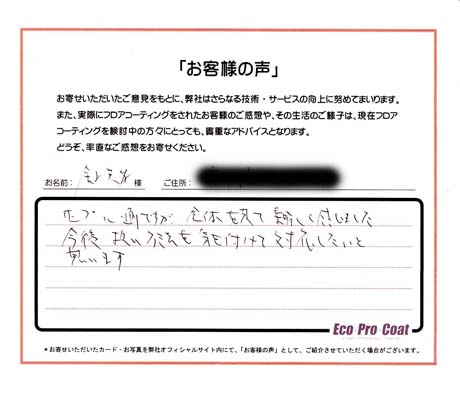 「お客様の声」
お寄せいただいたご意見をもとに、弊社はさらなる技術・サービスの向上に努めてまいります。
また、実際にフロアコーティングをされたお客様のご感想や、その生活のご様子は、現在フロア
コーティングを検討中の方々にとっても、貴重なアドバイスとなります。
どうぞ、率直なご感想をお寄せください。
お名前： 様 ご住所：
ですが 全体を見て 美しく感じました
今後 扱い方法も気を付けて対応したいと
思います
Eco Pro Coat
＊お寄せいただいたカード・お写真を弊社オフィシャルサイト内にて、「お客様の声」として、ご紹介させていただく場合がございます。